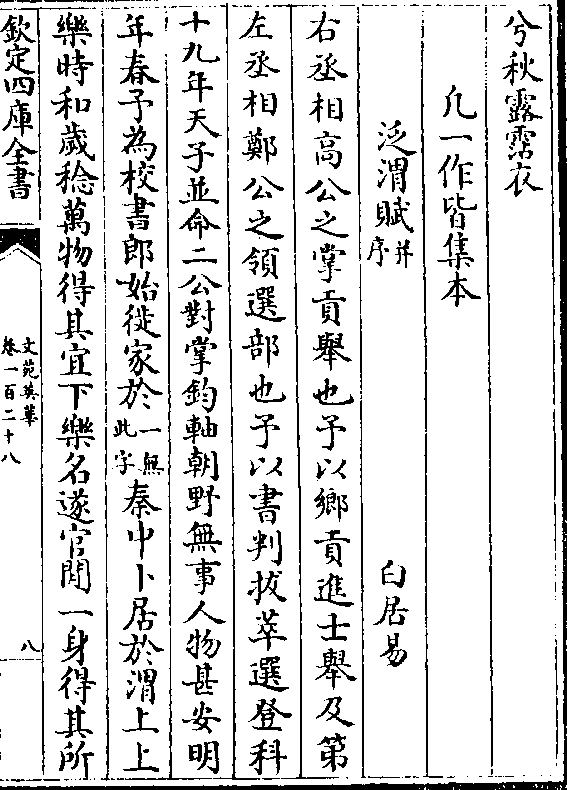 兮秋露霑衣
凡一作皆集本
泛渭賦并序 白居易
右丞相高公之掌貢舉也予以鄉貢進士舉及第
左丞相鄭公之領選部也予以書判拔萃選登科
十九年天子並命二公對掌鈞軸朝野無事人物甚安明
年春予為校書郎始徙家於一無此字秦中卜居於渭上上
樂時和歲稔萬物得其宜下樂名遂官閒一身得其所
欽定四庫全書
文苑英華
卷一百二十八
八